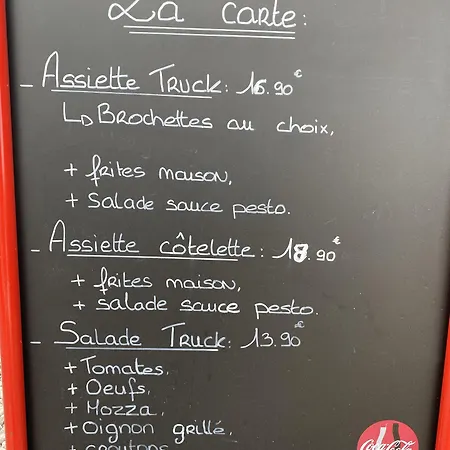 La carte:
- Assiette Truck: 16.90€
↳ Brochettes au choix,
+ frites maison,
+ Salade sauce pesto.
- Assiette côtelette: 18.90€
+ frites maison,
+ salade sauce pesto.
- Salade Truck: 13.90€
+ Tomates,
+ Oeufs,
+ Mozza,
+ Oignon grillé,
+ croutons
Coca-Cola